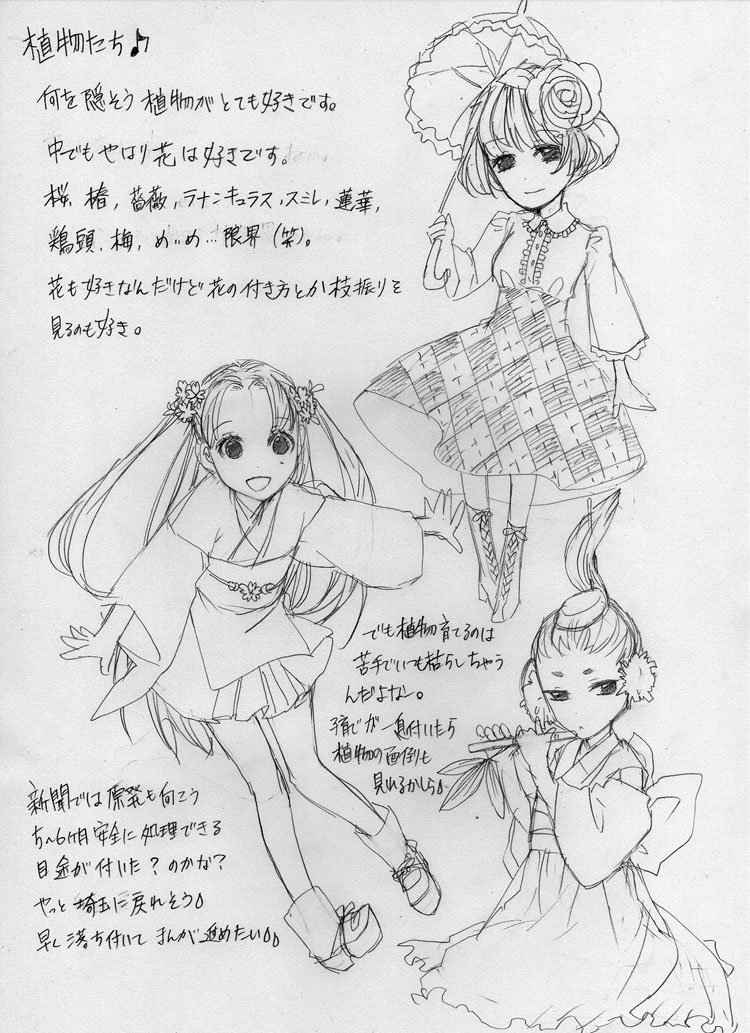 植物たち♪
何を隠そう植物がとても好きです。
中でもやはり花は好きです。
桜、椿、薔薇、ラナンキュラス、スミレ、蓮華、
鶏頭、梅、め…め…限界(笑)。
花も好きなんだけど花の付き方とか枝振りを
見るのも好き。
でも植物育てるのは
苦手でいつも枯らしちゃう
んだよなー。
子育てが一息付いたら
植物の面倒も
見れるかしら♪
新聞では原発も向こう
5〜6ヶ月安全に処理できる
目金が付いた?のかな?
やっと埼玉に戻れそう♪
早く落ち付いてまんが進めたい♪♪